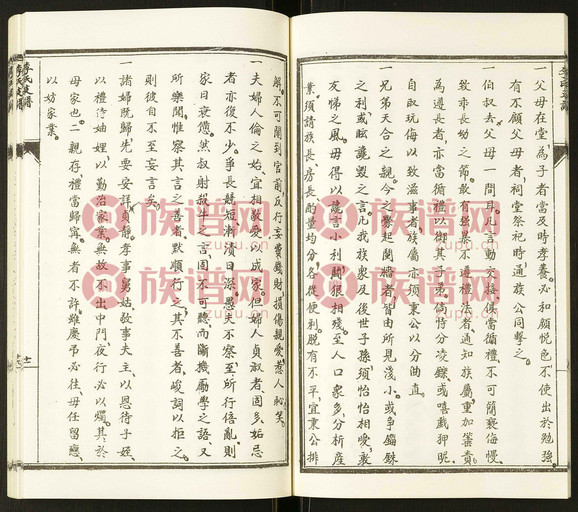 一父母在堂為子者當及時孝養必和顏悅色不使出於勉強
有不顧父母者祠堂祭祀時通族公同擊之
一伯叔去父母一間耳凡言動交接俱當循禮不可簡褻侮慢
致乖長幼之節敢有強暴不遵禮法者通知族屬重加箠責
為尊長者亦當循禮以御其子弟倘恃分凌鑠或嘻戲狎昵
自取玩侮以致滋事者族屬亦須秉公以分曲直
一兄弟天合之親今之釁起鬩牆者皆由所見淺小或爭錙銖
之利或眩讒毀之言凡我族衆及後世子孫須怡怡相愛敦
友悌之風毋得以讒言小利鬩狠相殘至人口衆多分析產
業須請族長房長酌量均分各從便利脫有不平宜秉公排
解不可鬧到官前反行妄費錢財損傷親愛惹人恥笑
一夫婦人倫之始宜相敬愛以成家但婦人貞淑者固多妬忌
者亦復不少爭長競短漸漬日深愚夫不察至所行倍亂則
家日衰憊然叔射殺牛之言固不可聽而斷機勵學之語又
所樂聞惟察其言之善者默順行之其不善者峻詞以拒之
則彼自不至妄言矣
一諸婦既歸先要安詳貞靜孝事舅姑敬事夫主以恩待子姪
以禮待妯娌以勤治家業無故不出中門夜行必以燭其於
母家也二親存禮當歸寧無者不許雖慶弔必往毋任留戀
以妨家業
族谱网
zupu.cn
族谱网
zupu.cn
族谱网
zupu.cn
族谱网
zupu.cn